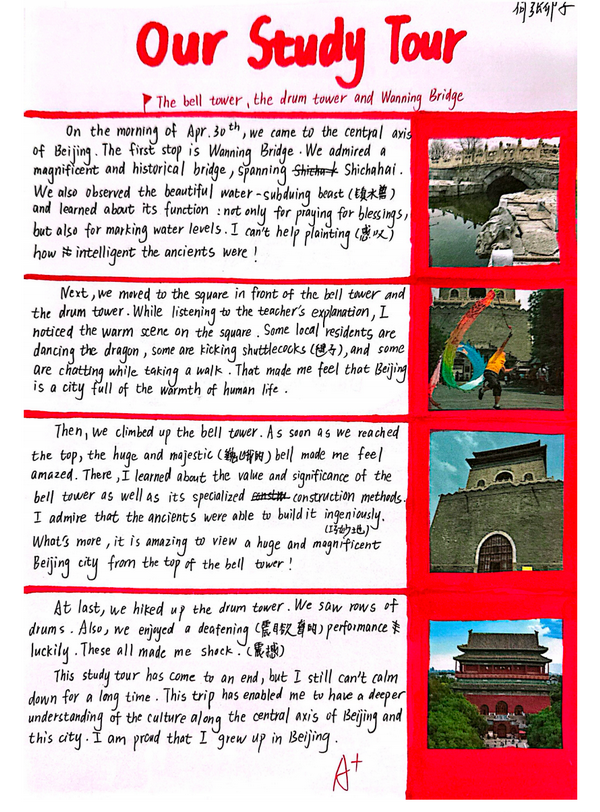 Our Study Tour
The bell tower, the drum tower and Wanning Bridge
On the morning of Apr. 30th, we came to the central axis
of Beijing. The first stop is Wanning Bridge. We admired a
magnificent and historical bridge, spanning Shichahai.
We also observed the beautiful water-subduing beast (镇水兽)
and learned about its function : not only for praying for blessings,
but also for marking water levels. I can't help plainting (惠叹)
how intelligent the ancients were !
Next, we moved to the square in front of the bell tower and
the drum tower. While listening to the teacher's explanation, I
noticed the warm scene on the square. Some local residents are
dancing the dragon, some are kicking shuttlecocks (毽子), and some
are chatting while taking a walk. That made me feel that Beijing
is a city full of the warmth of human life.
Then, we climbed up the bell tower. As soon as we reached
the top, the huge and majestic (巍峨的) bell made me feel
amazed. There, I learned about the value and significance of the
bell tower as well as its specialized construction methods.
I admire that the ancients were able to build it ingeniously.
(巧妙地)
What's more, it is amazing to view a huge and magnificent
Beijing city from the top of the bell tower !
At last, we hiked up the drum tower. We saw rows of
drums. Also, we enjoyed a deafening (震耳欲聋的) performance
luckily. These all made me shock. (震撼)
This study tour has come to an end, but I still can't calm
down for a long time. This trip has enabled me to have a deeper
understanding of the culture along the central axis of Beijing and
this city. I am proud that I grew up in Beijing.
A+